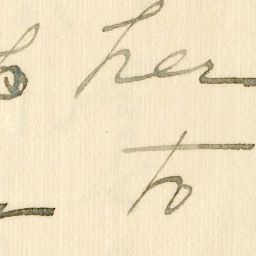 her
to